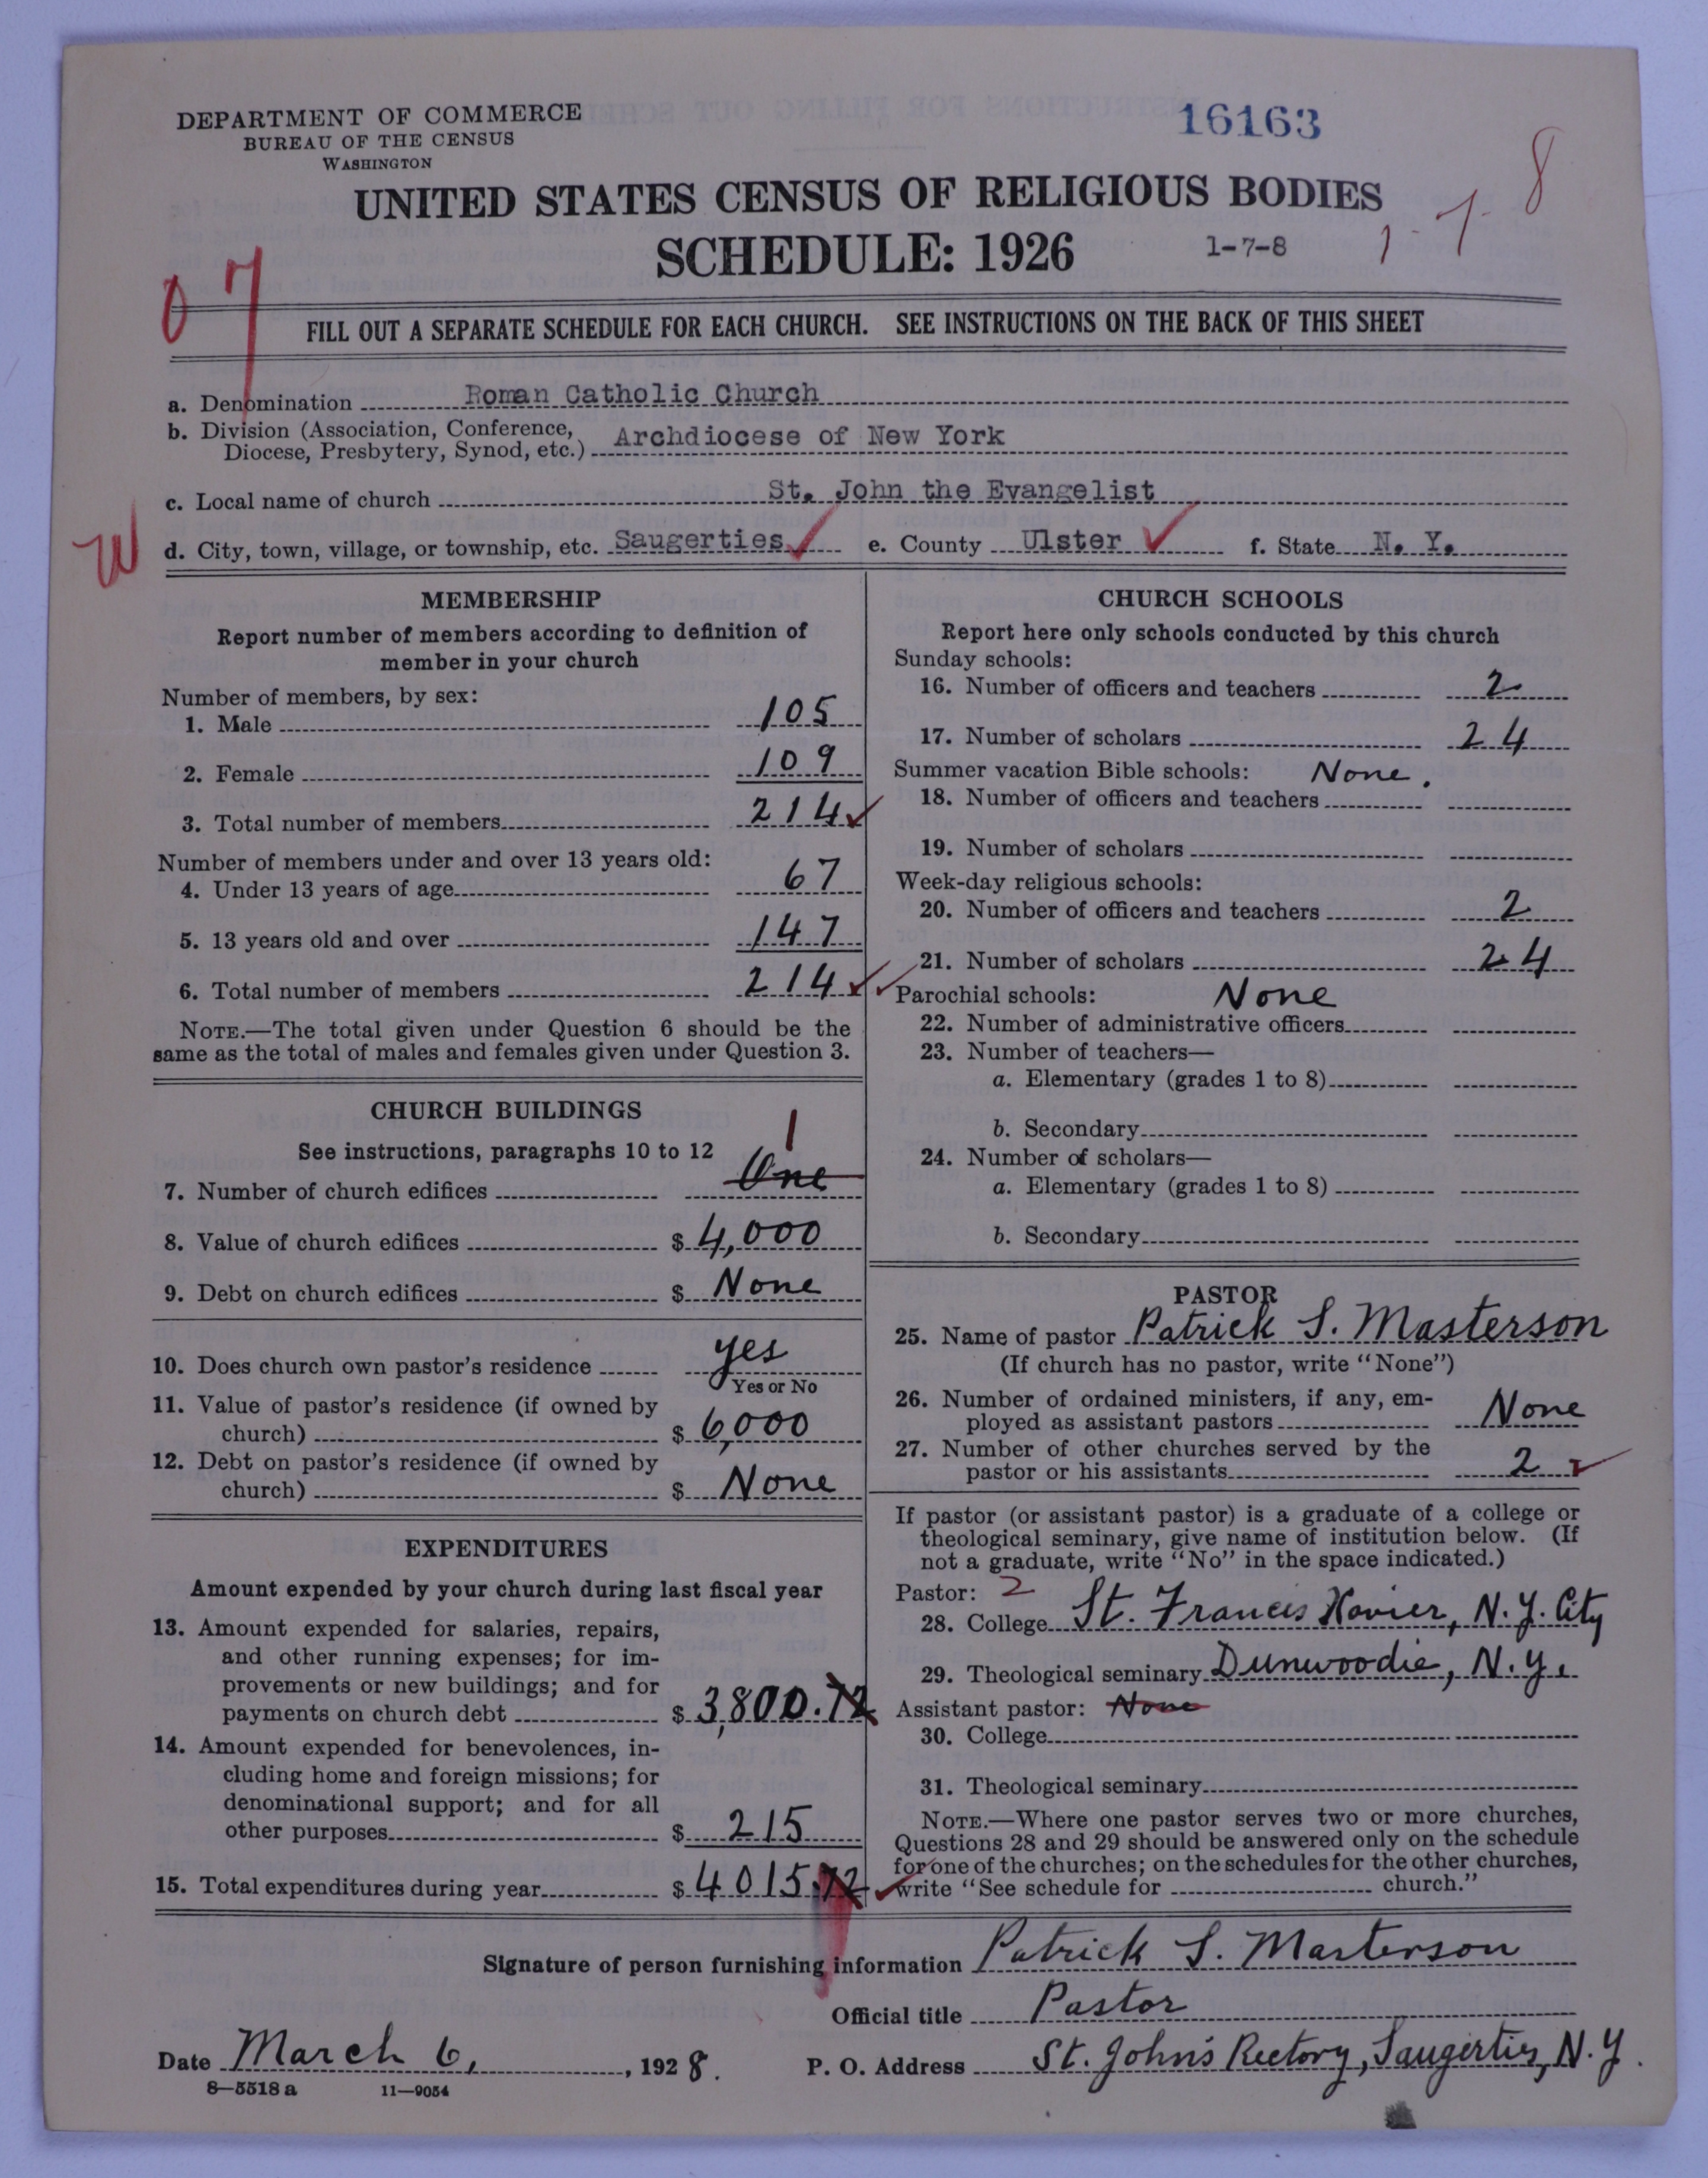 DEPARTMENT OF COMMERCE
BUREAU OF THE CENSUS
WASHINGTON
16163
UNITED STATES CENSUS OF RELIGIOUS BODIES
SCHEDULE: 1926
1-7-8
1-7-8
07
FILL OUT A SEPARATE SCHEDULE FOR EACH CHURCH. SEE INSTRUCTIONS ON THE BACK OF THIS SHEET
a. Denomination Roman Catholic Church
b. Division (Association, Conference,
Diocese, Presbytery, Synod, etc.) Archdiocese of New York
c. Local name of church St. John the Evangelist
d. City, town, village, or township, etc. Saugerties e. County Ulster f. State N. Y.
MEMBERSHIP
Report number of members according to definition of
member in your church
Number of members, by sex:
1. Male 105
2. Female 109
3. Total number of members 214
Number of members under and over 13 years old:
4. Under 13 years of age 67
5. 13 years old and over 147
6. Total number of members 214
NOTE.—The total given under Question 6 should be the
same as the total of males and females given under Question 3.
CHURCH BUILDINGS
See instructions, paragraphs 10 to 12
1
7. Number of church edifices One
8. Value of church edifices $ 4,000
9. Debt on church edifices $ None
10. Does church own pastor's residence yes
Yes or No
11. Value of pastor's residence (if owned by
church) $ 6,000
12. Debt on pastor's residence (if owned by
church) $ None
EXPENDITURES
Amount expended by your church during last fiscal year
13. Amount expended for salaries, repairs,
and other running expenses; for im-
provements or new buildings; and for
payments on church debt $ 3,800.72
14. Amount expended for benevolences, in-
cluding home and foreign missions; for
denominational support; and for all
other purposes $ 215
15. Total expenditures during year $ 4015.72
CHURCH SCHOOLS
Report here only schools conducted by this church
Sunday schools:
16. Number of officers and teachers 2
17. Number of scholars 24
Summer vacation Bible schools: None.
18. Number of officers and teachers
19. Number of scholars
Week-day religious schools:
20. Number of officers and teachers 2
21. Number of scholars 24
Parochial schools: None
22. Number of administrative officers
23. Number of teachers—
a. Elementary (grades 1 to 8)
b. Secondary
24. Number of scholars—
a. Elementary (grades 1 to 8)
b. Secondary
PASTOR
25. Name of pastor Patrick S. Masterson
(If church has no pastor, write "None")
26. Number of ordained ministers, if any, em-
ployed as assistant pastors None
27. Number of other churches served by the
pastor or his assistants 2
If pastor (or assistant pastor) is a graduate of a college or
theological seminary, give name of institution below. (If
not a graduate, write "No" in the space indicated.)
Pastor: 2
28. College St. Francis Xavier, N.Y. City
29. Theological seminary Dunwoodie, N.Y.
Assistant pastor: None
30. College
31. Theological seminary
NOTE.—Where one pastor serves two or more churches,
Questions 28 and 29 should be answered only on the schedule
for one of the churches; on the schedules for the other churches,
write "See schedule for church."
Signature of person furnishing information Patrick S. Masterson
Official title Pastor
Date March 6, 1928. P. O. Address St. John's Rectory, Saugerties, N.Y.
8—5518 a 11—9054